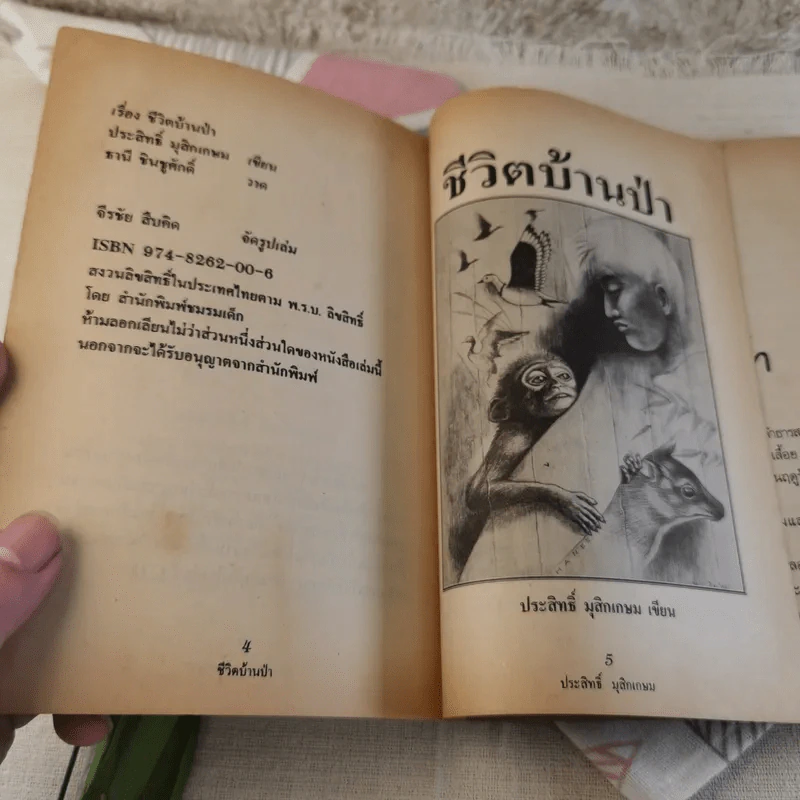 เรื่อง ชีวิตบ้านป่า
ประสิทธิ์ มุสิกเกษม เขียน
ธานี ชินชูศักดิ์ วาด
จีรชัย สืบคิด จัดรูปเล่ม
ISBN 974-8262-00-6
สงวนลิขสิทธิ์ในประเทศไทยตาม พ.ร.บ. ลิขสิทธิ์
โดย สำนักพิมพ์ชมรมเด็ก
ห้ามลอกเลียนไม่ว่าส่วนหนึ่งส่วนใดของหนังสือเล่มนี้
นอกจากจะได้รับอนุญาตจากสำนักพิมพ์
4
ชีวิตบ้านป่า
ชีวิตบ้านป่า
ประสิทธิ์ มุสิกเกษม เขียน
5
ประสิทธิ์ มุสิกเกษม